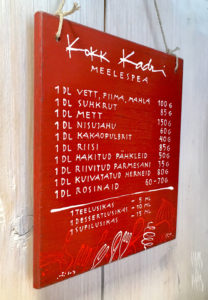 Kokk Kadri
MEELESPEA
1 DL VETT, PIIMA, MAHLA 100 G
1 DL SUHKRUT 85 G
1 DL METT 150 G
1 DL NISUJAHU 60 G
1 DL KAKAOPULBRIT 40 G
1 DL RIISI 85 G
1 DL HAKITUD PÄHKLEID 50 G
1 DL RIIVITUD PARMESANI 75 G
1 DL KUIVATATUD HERNEID 80 G
1 DL ROSINAID 60-70 G
1 TEELUSIKAS = 5 ML
1 DESSERTLUSIKAS = 10 ML
1 SUPILUSIKAS = 15 ML